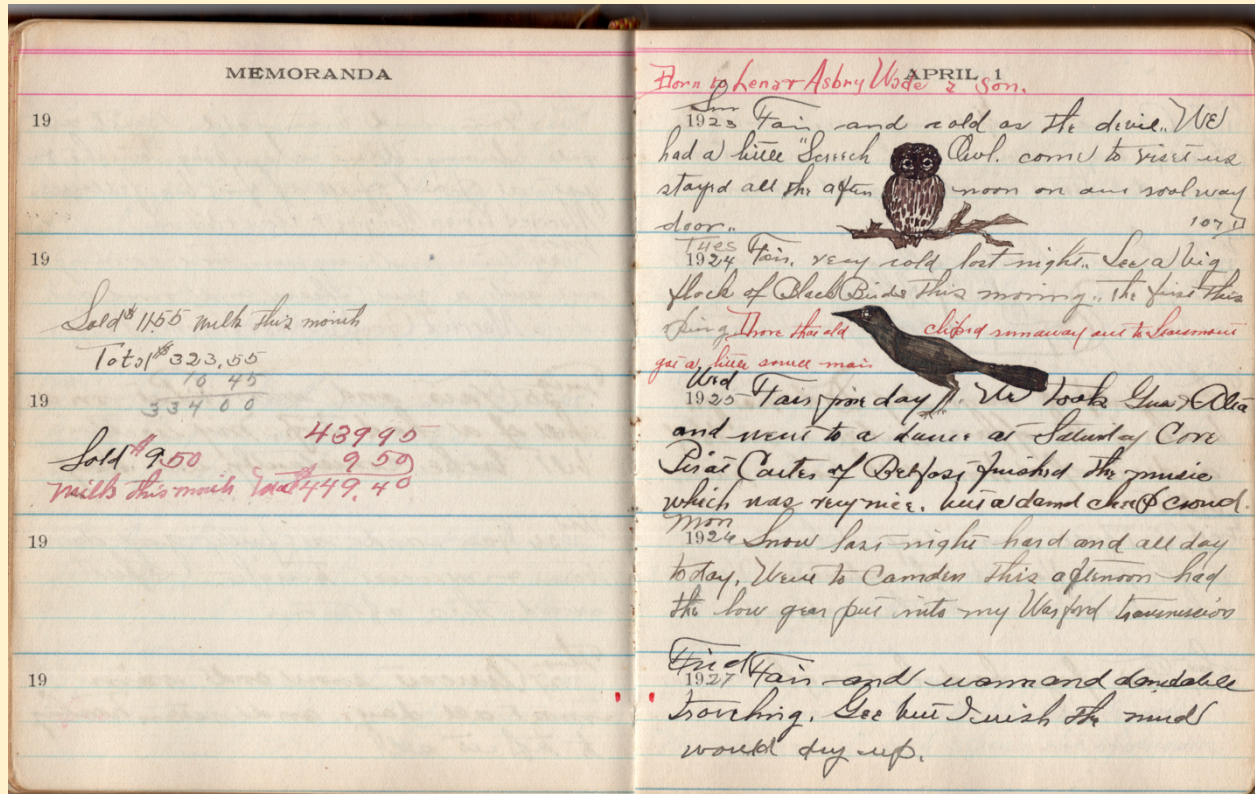 MEMORANDA
19
19
Sold $ 11.55 milk this month
Total $ 323.55
10 45
334 00
19
439 95
Sold $ 9.50 9 50
milk this month Total $ 449.40
19
19
APRIL 1
Born to Lena & Asbry Wade a son.
Sun
1923 Fair and cold as the devil.. We
had a little "Screech Owl. come to visit us
stayed all the after noon on our
door.. 107
Tues
1924 Fair. very cold last night.. See a big
flock of Black Birds this morning.. the first this
spring. cliford runaway out to Searsmont
got a little
Wed
1925 Fair fine day. We took Gus &
and went to a dance at Saturday Cove
Carter of Belfast finished the music
which was very nice. but a damd cheap crowd.
Mon
1926 Snow last night hard and all day
today. Went to Camden this afternoon had
the low gear put into my Warford transmission
Frid
1927 Fair and warm and
traveling. Gee but I wish the mud
would dry up.